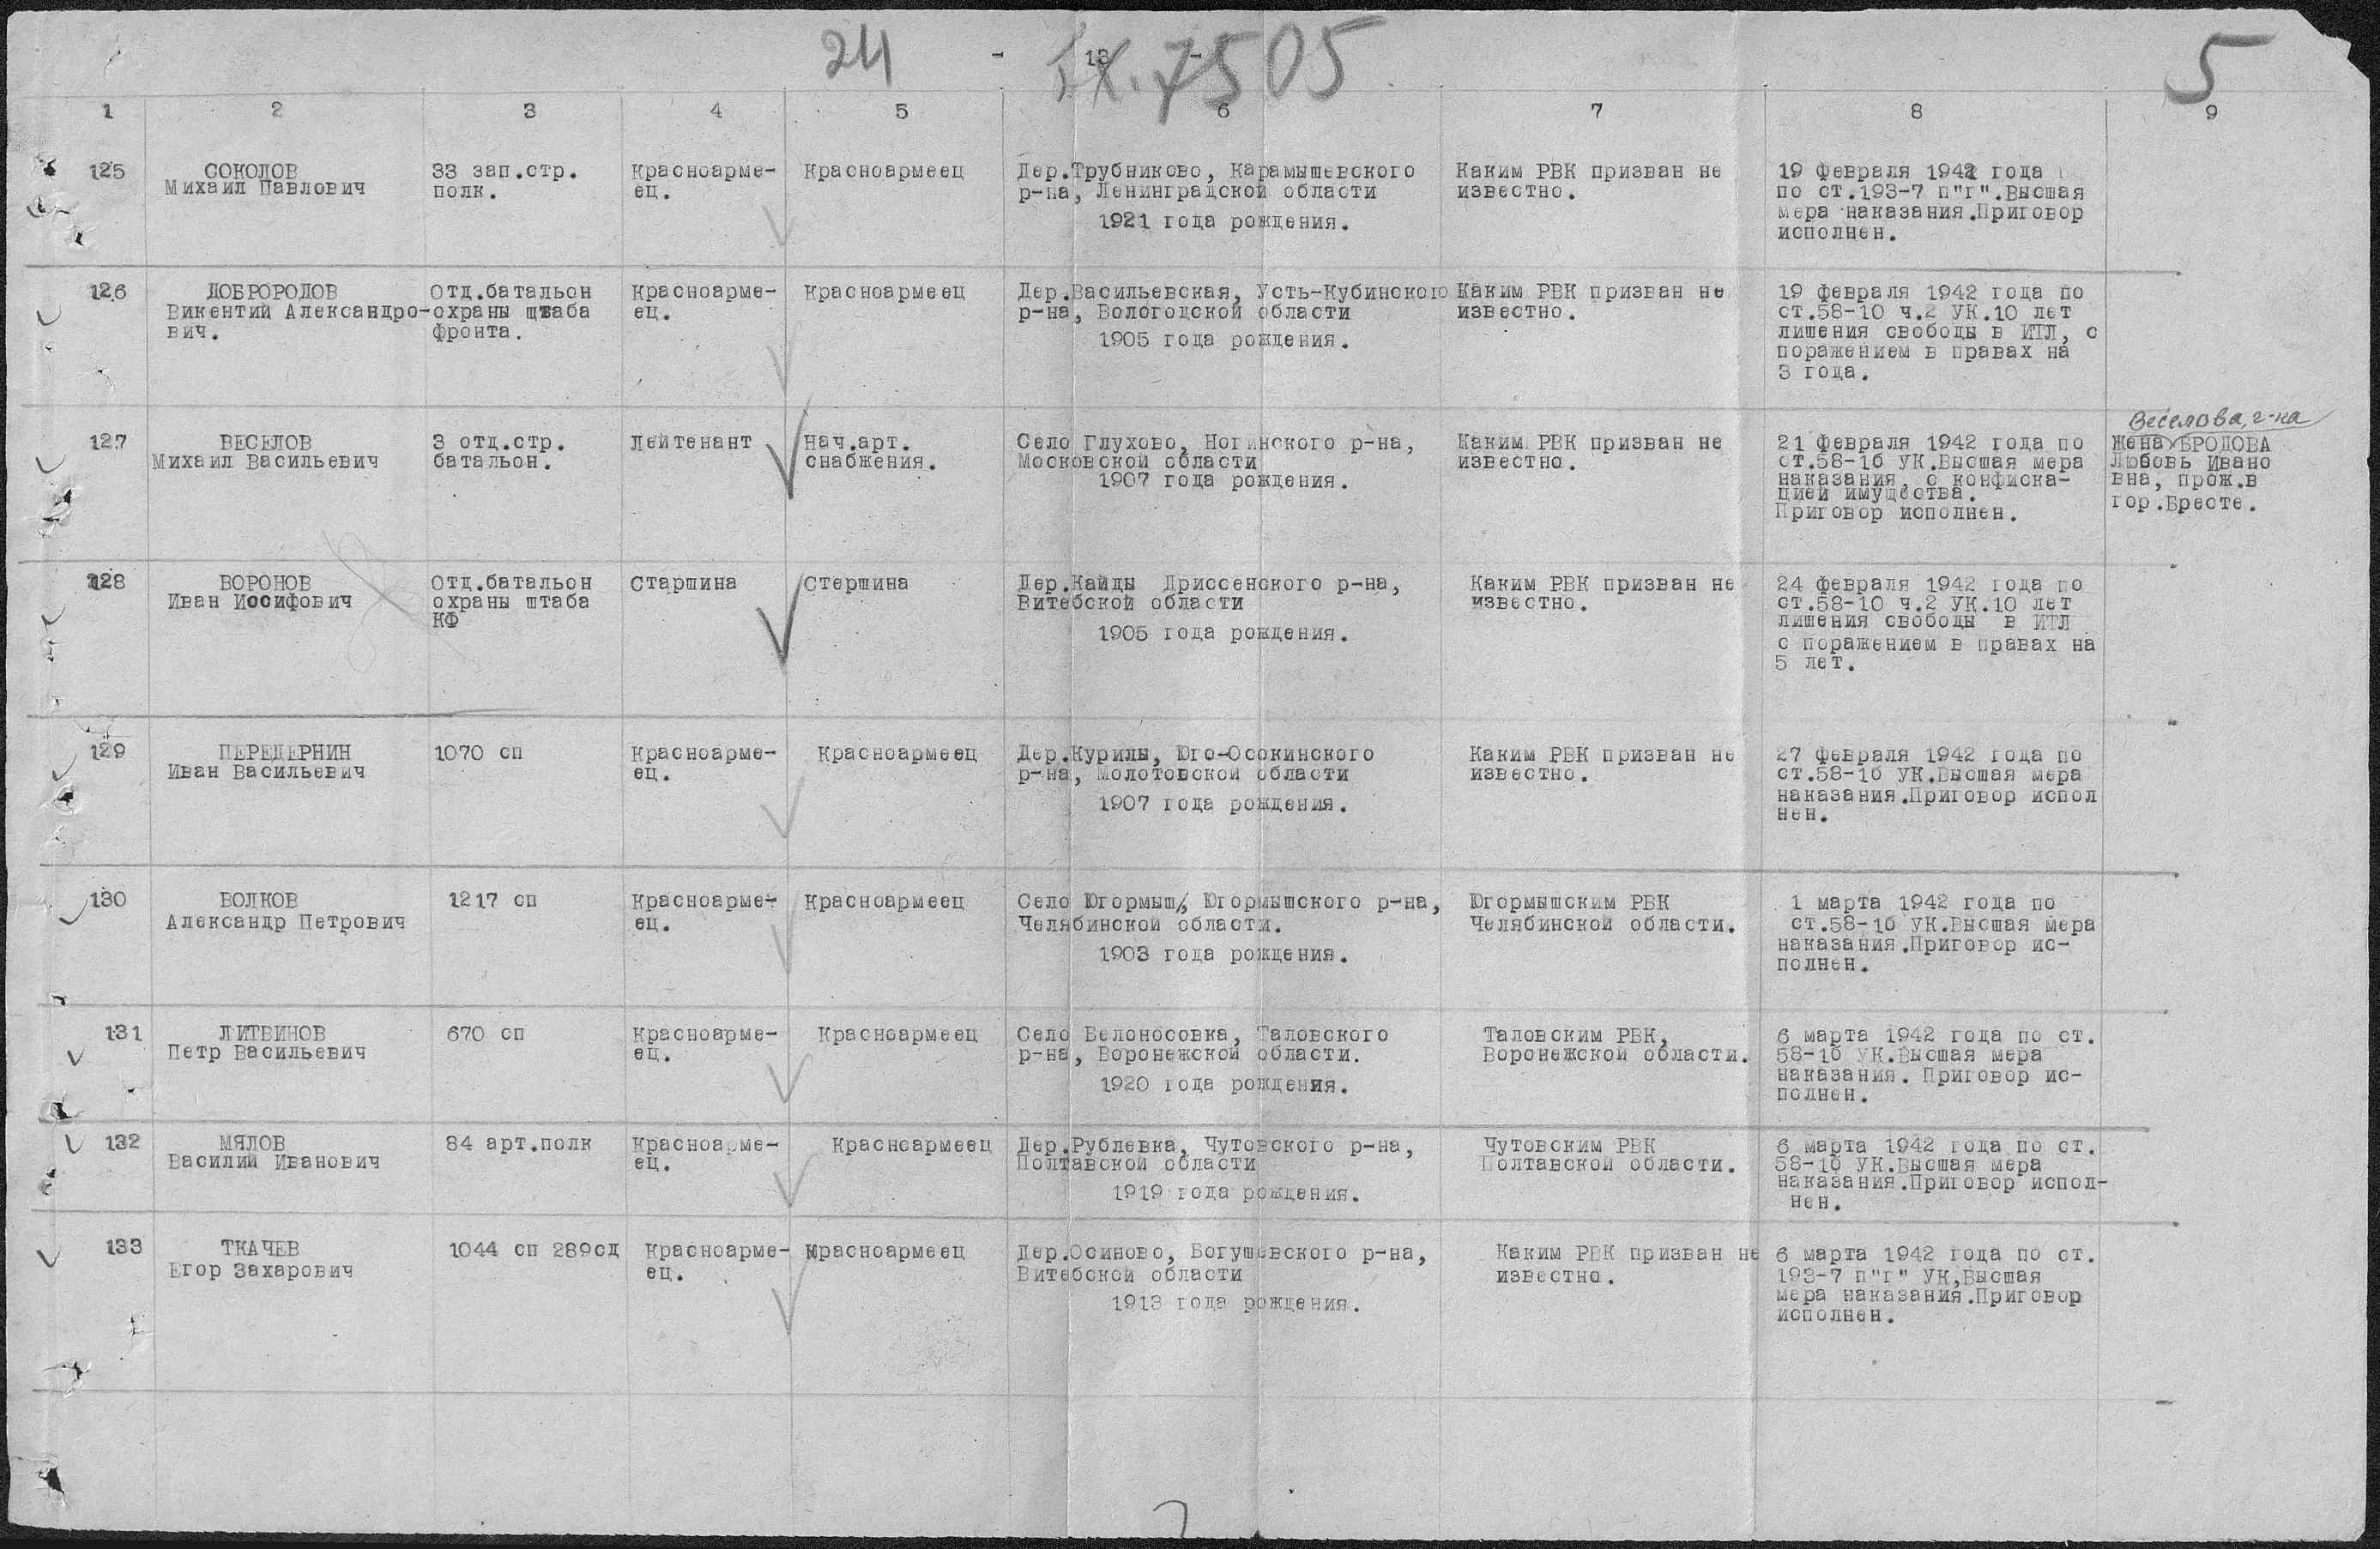 24 - 13 - Вх.7505 5
1 2 3 4 5 6 7 8 9
125
СОКОЛОВ
Михаил Павлович
33 зап.стр.
полк.
Красноарме-
ец.
Красноармеец
Дер.Трубниково, Карамышевского
р-на, Ленинградской области
1921 года рождения.
Каким РВК призван не
известно.
19 февраля 1942 года
по ст.193-7 п"г".Высшая
мера наказания.Приговор
исполнен.
126
ДОБРОРОДОВ
Викентий Александро-
вич.
Отд.батальон
охраны штаба
фронта.
Красноарме-
ец.
Красноармеец
Дер.Васильевская, Усть-Кубинского
р-на, Вологодской области
1905 года рождения.
Каким РВК призван не
известно.
19 февраля 1942 года по
ст.58-10 ч.2 УК.10 лет
лишения свободы в ИТЛ, с
поражением в правах на
3 года.
127
ВЕСЕЛОВ
Михаил Васильевич
3 отд.стр.
батальон.
Лейтенант
Нач.арт.
снабжения.
Село Глухово, Ногинского р-на,
Московской области
1907 года рождения.
Каким РВК призван не
известно.
21 февраля 1942 года по
ст.58-1б УК.Высшая мера
наказания, с конфиска-
цией имущества.
Приговор исполнен.
Веселова, г-ка
Жена БРОДОВА
Любовь Ивано
вна, прож.в
гор.Бресте.
128
ВОРОНОВ
Иван Иосифович
Отд.батальон
охраны штаба
КФ
Старшина
Стершина
Дер.Кайды Дриссенского р-на,
Витебской области
1905 года рождения.
Каким РВК призван не
известно.
24 февраля 1942 года по
ст.58-10 ч.2 УК.10 лет
лишения свободы в ИТЛ
с поражением в правах на
5 лет.
129
ПЕРЕДЕРНИН
Иван Васильевич
1070 сп
Красноарме-
ец.
Красноармеец
Дер.Курилы, Юго-Осокинского
р-на, Молотовской области
1907 года рождения.
Каким РВК призван не
известно.
27 февраля 1942 года по
ст.58-1б УК.Высшая мера
наказания.Приговор испол
нен.
130
ВОЛКОВ
Александр Петрович
1217 сп
Красноарме-
ец.
Красноармеец
Село Югормыш, Югормышского р-на,
Челябинской области.
1903 года рождения.
Югормышским РВК
Челябинской области.
1 марта 1942 года по
ст.58-1б УК.Высшая мера
наказания.Приговор ис-
полнен.
131
ЛИТВИНОВ
Петр Васильевич
670 сп
Красноарме-
ец.
Красноармеец
Село Белоносовка, Таловского
р-на, Воронежской области.
1920 года рождения.
Таловским РВК,
Воронежской области.
6 марта 1942 года по ст.
58-1б УК.Высшая мера
наказания. Приговор ис-
полнен.
132
МЯЛОВ
Василий Иванович
84 арт.полк
Красноарме-
ец.
Красноармеец
Дер.Рублевка, Чутовского р-на,
Полтавской области
1919 года рождения.
Чутовским РВК
Полтавской области.
6 марта 1942 года по ст.
58-1б УК.Высшая мера
наказания.Приговор испол-
нен.
133
ТКАЧЕВ
Егор Захарович
1044 сп 289сд
Красноарме-
ец.
Красноармеец
Дер.Осиново, Богушевского р-на,
Витебской области
1913 года рождения.
Каким РВК призван не
известно.
6 марта 1942 года по ст.
193-7 п"г" УК,Высшая
мера наказания.Приговор
исполнен.